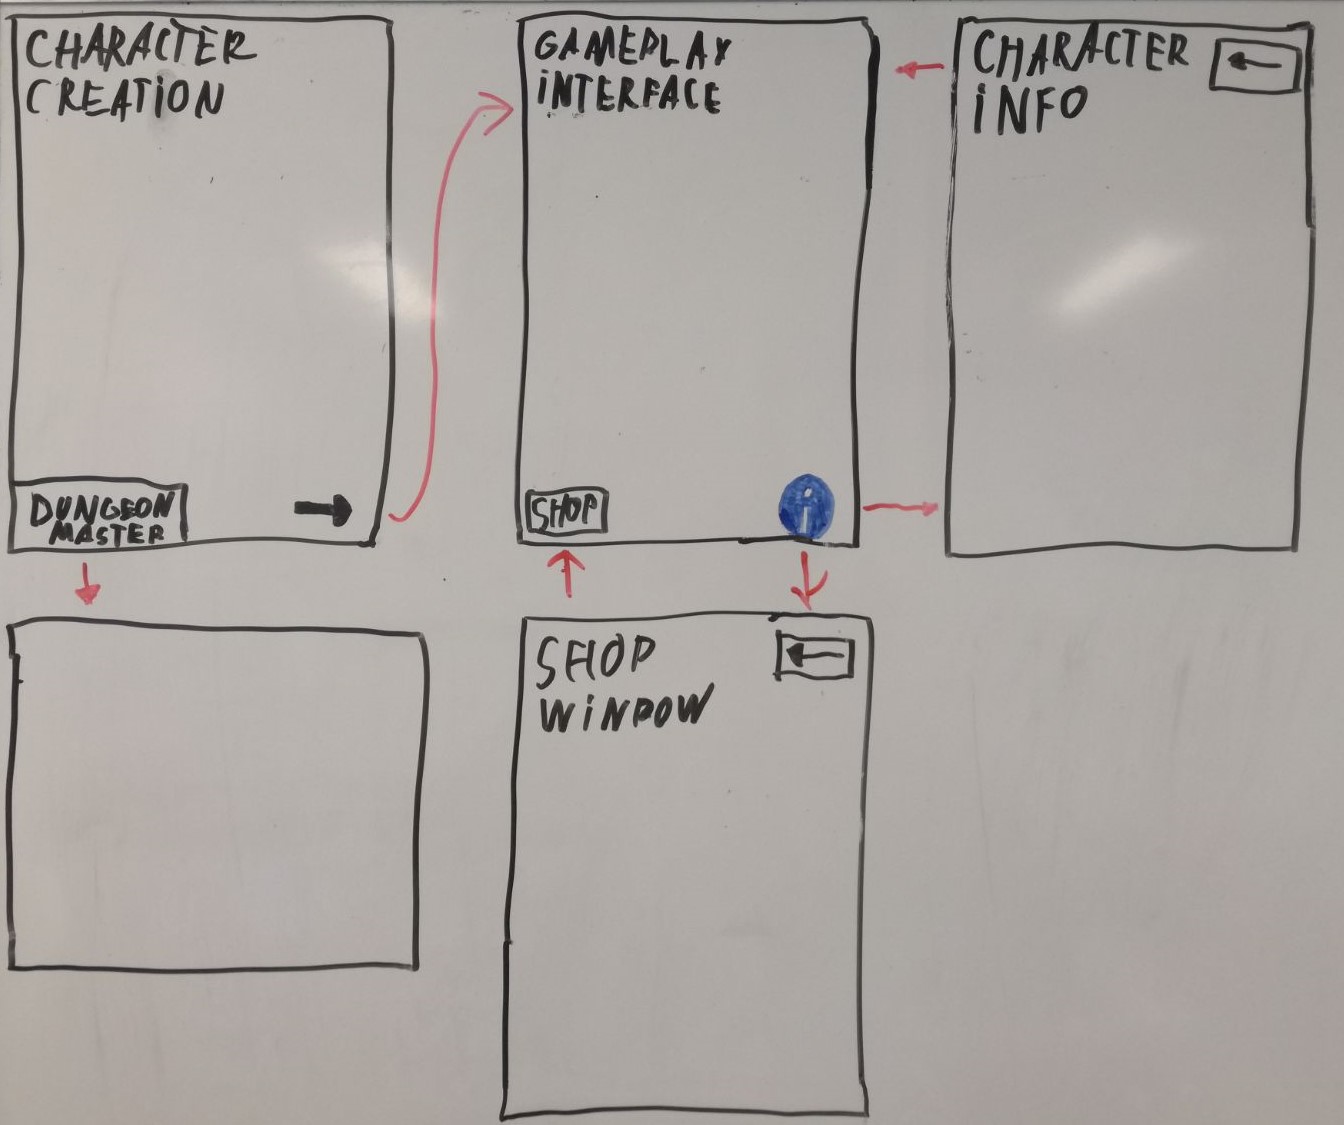 CHARACTER
CREATION
DUNGEON
MASTER
GAMEPLAY
INTERFACE
SHOP
i
CHARACTER
INFO
SHOP
WINDOW